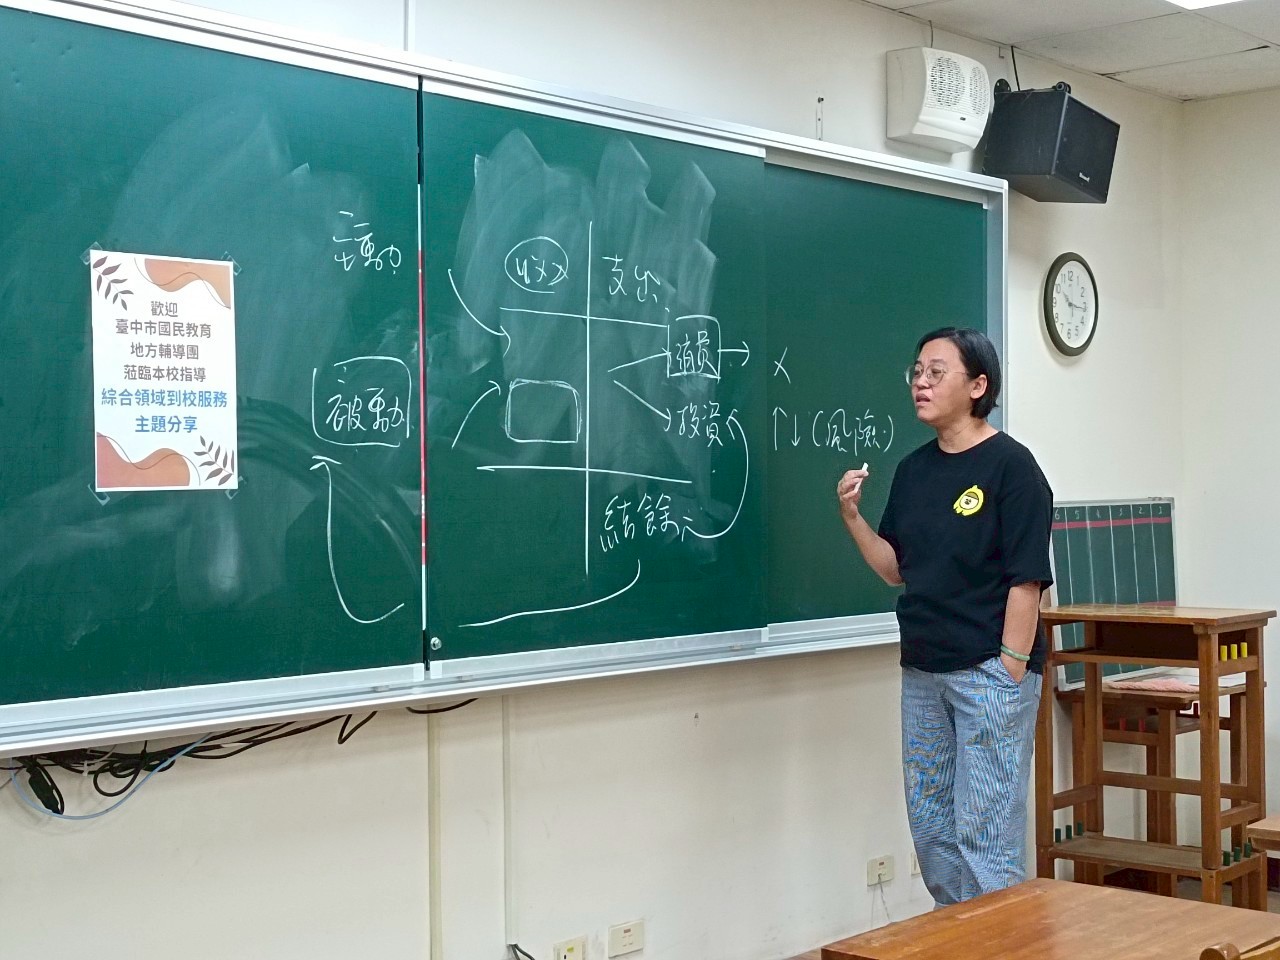 歡迎
臺中市國民教育
地方輔導團
蒞臨本校指導
綜合領域到校服務
主題分享
主動
被動
收入
支出
消費
x
投資
↑↓(風險)
結餘